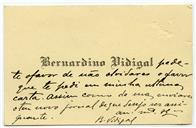 Bernardino Vidigal pede-
te o favor de não olvidares o favor
que te pedi em minha ultima
carta. Assim como de me enviares
outro novo jornal de que desejo ser assi-
gnante.
B. Vidigal